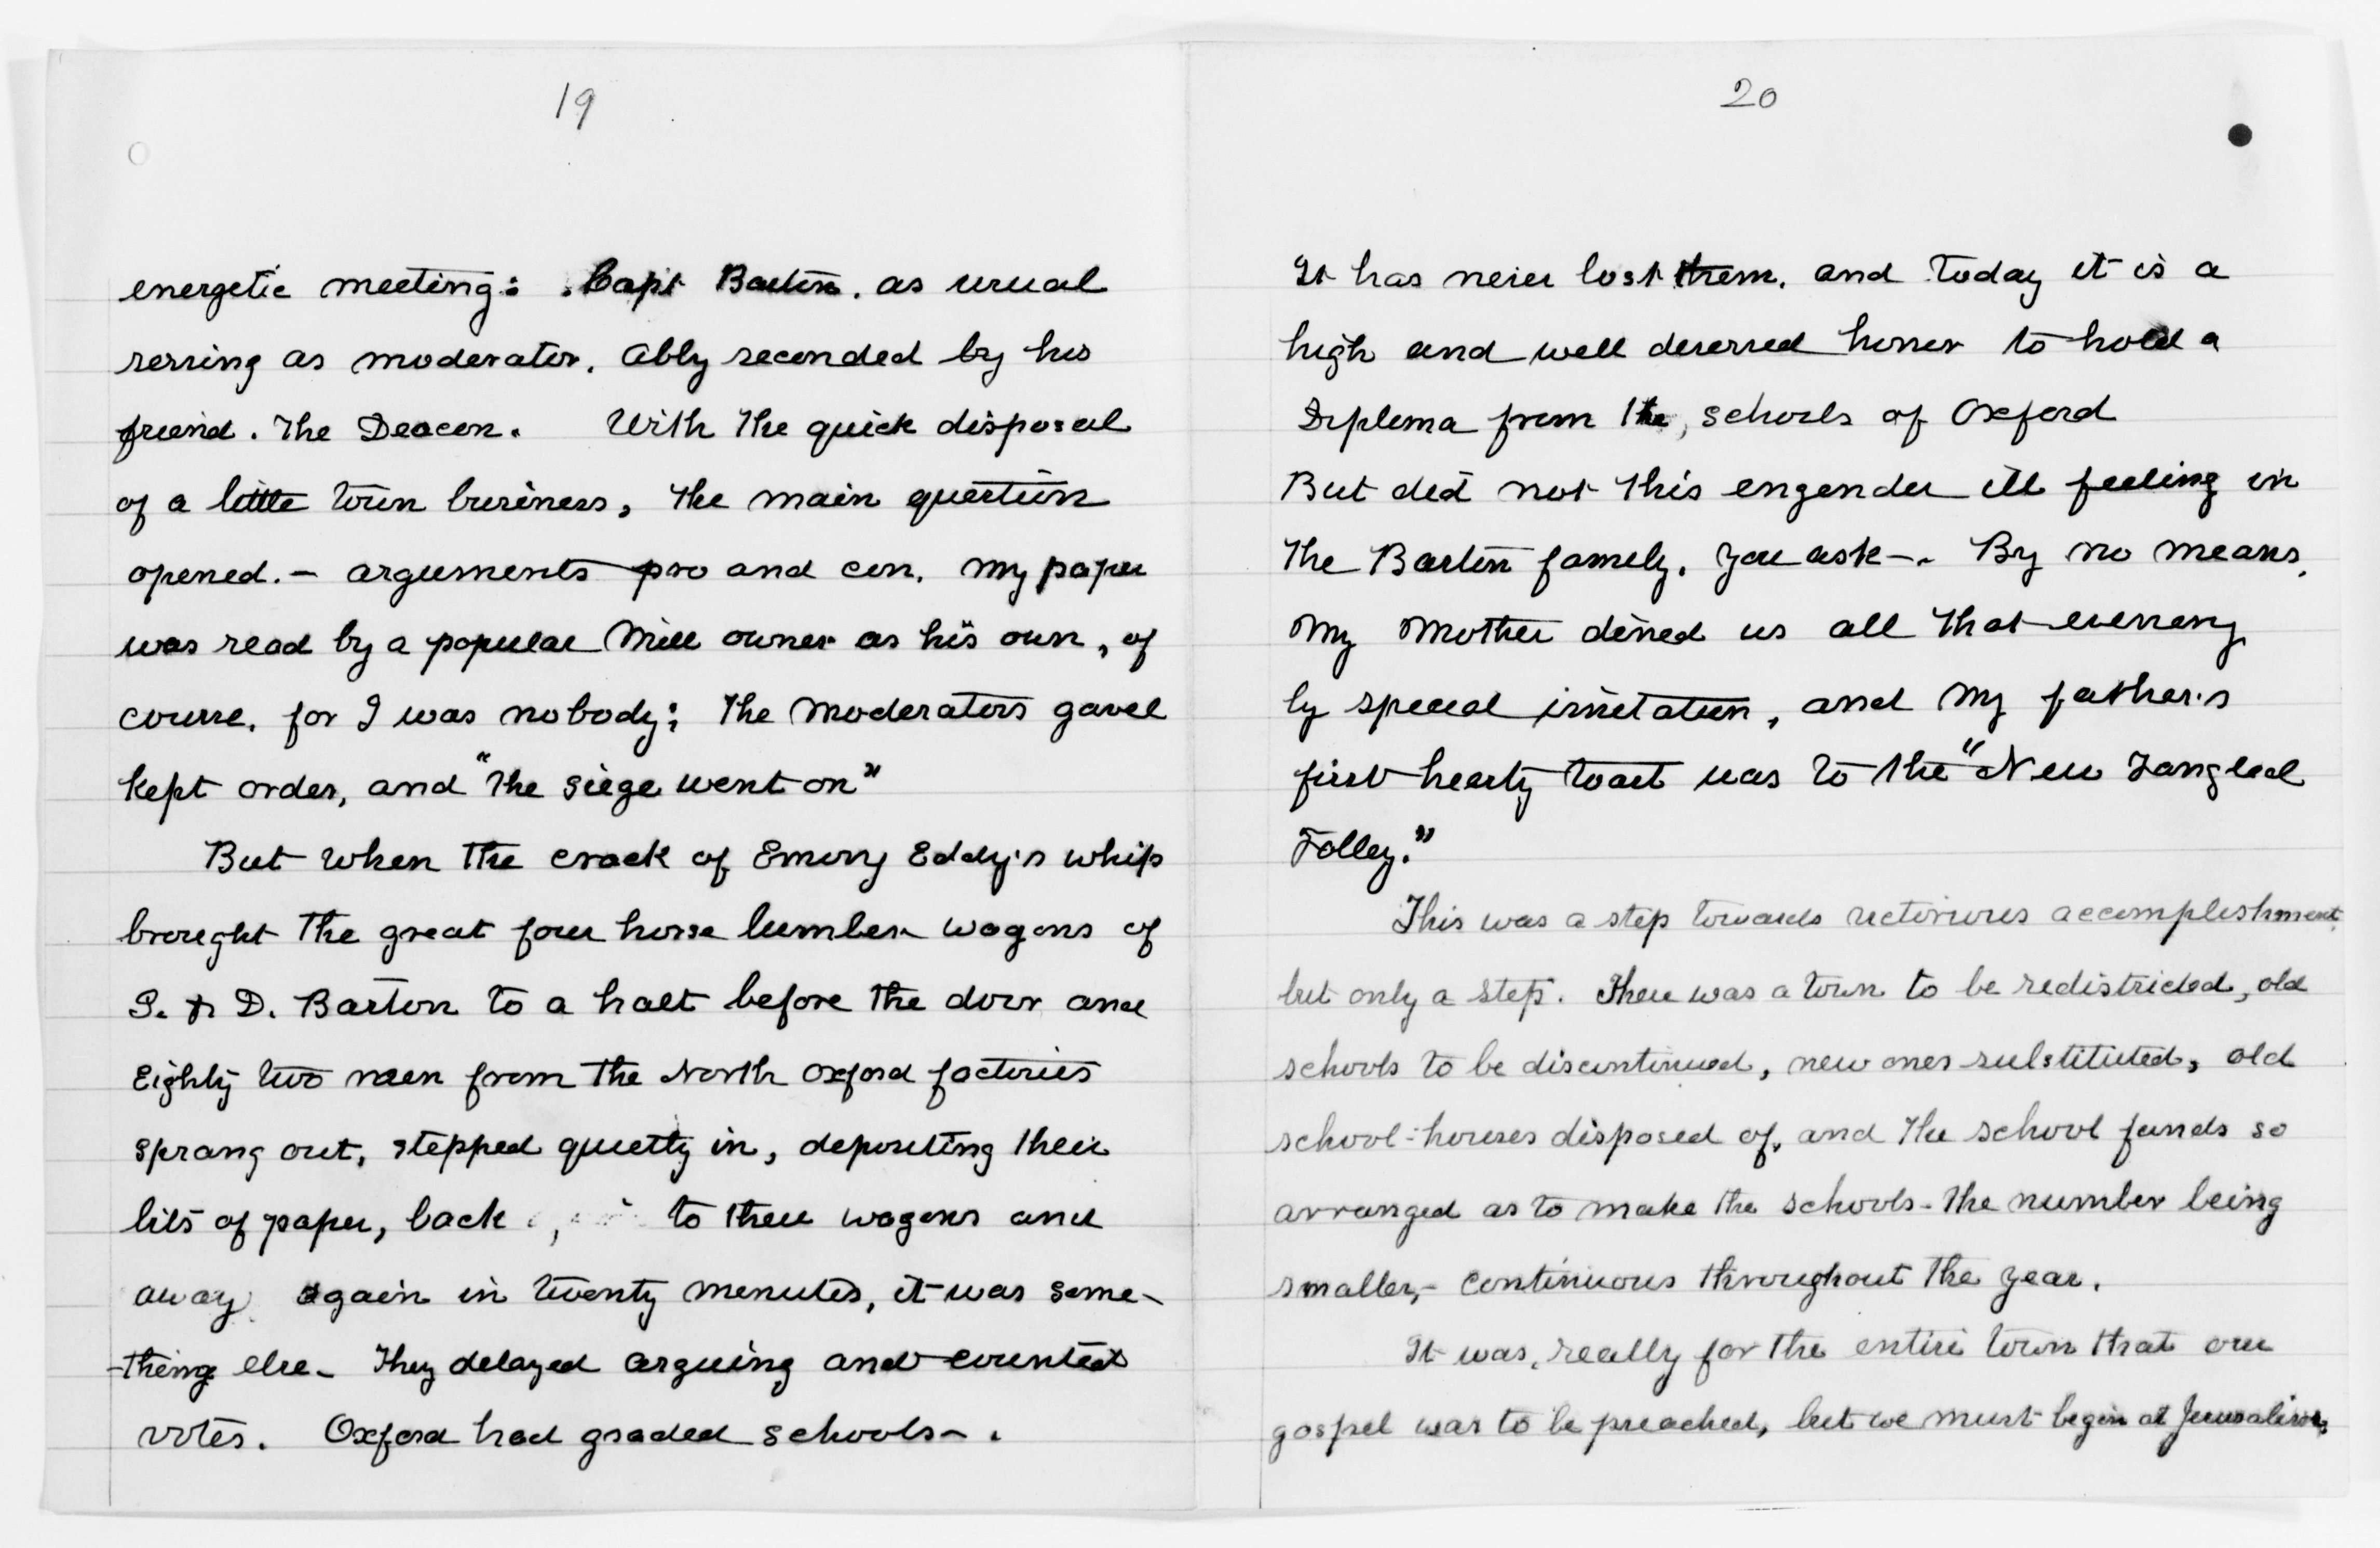 19
energetic meeting: Capt Barton. as usual
serving as moderator. Ably seconded by his
friend. The Deacon. With the quick disposal
of a little town business, the main question
opened. — arguments pro and con. My paper
was read by a popular Mill owner as his own, of
course. for I was nobody; The Moderators gavel
kept order, and "The siege went on"
But when the crack of Emory Eddy's whip
brought the great four horse lumber wagons of
S. & D. Barton to a halt before the door and
Eighty two men from the North Oxford factories
sprang out, stepped quietly in, depositing their
bits of paper, back to their wagons and
away again in twenty minutes, it was some-
-thing else - They delayed arguing and counted
votes. Oxford had graded schools - .
20
It has never lost them. and today it is a
high and well deserved honor to hold a
Diploma from the, schools of Oxford
But did not this engender ill feeling in
the Barton family. You ask -. By no means.
My Mother dined us all that evening
by special invitation, and my father's
first hearty toast was to the "New Fangled
Folley."
This was a step towards victorious accomplishment,
but only a step. There was a town to be redistricted, old
schools to be discontinued, new ones substituted, old
school-houses disposed of, and the school funds so
arranged as to make the schools - the number being
smaller, - continuous throughout the year.
It was, really for the entire town that our
gospel was to be preached, but we must begin at Jerusalem.